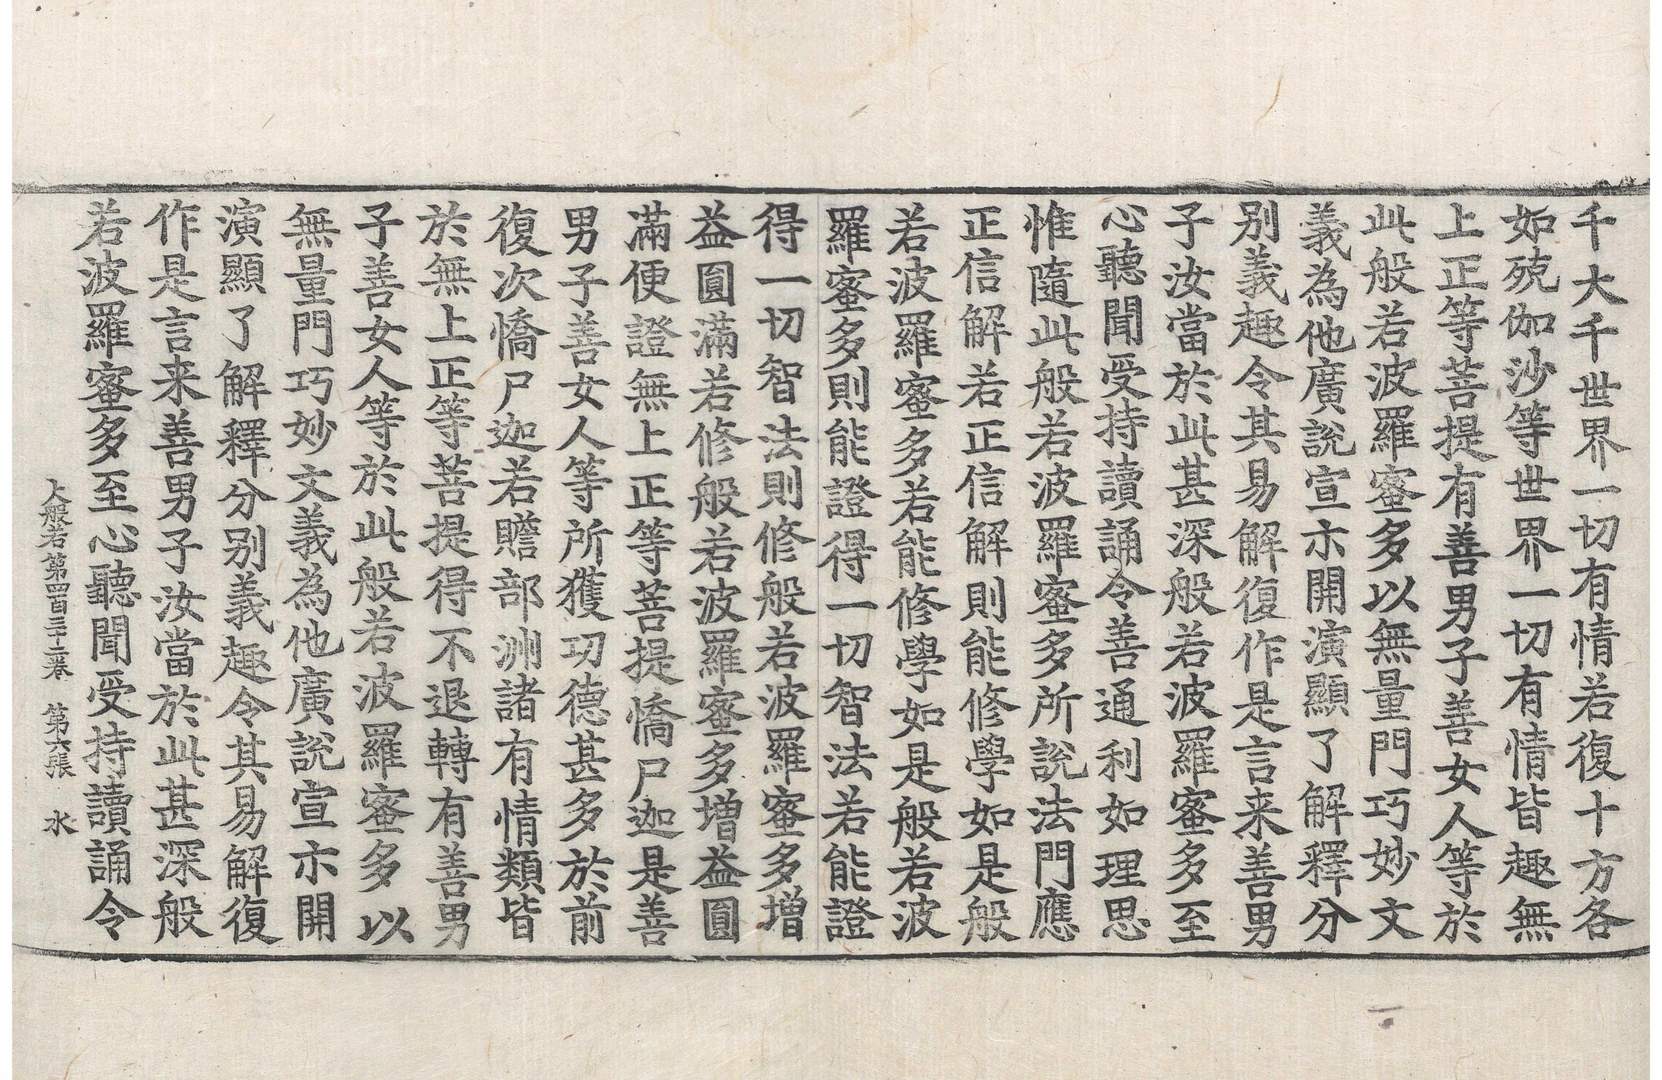 千大千世界一切有情若復十方各
如殑伽沙等世界一切有情皆趣無
上正等菩提有善男子善女人等於
此般若波羅蜜多以無量門巧妙文
義為他廣說宣示開演顯了解釋分
別義趣令其易解復作是言来善男
子汝當於此甚深般若波羅蜜多至
心聽聞受持讀誦令善通利如理思
惟隨此般若波羅蜜多所說法門應
正信解若正信解則能修學如是般
若波羅蜜多若能修學如是般若波
羅蜜多則能證得一切智法若能證
得一切智法則修般若波羅蜜多增
益圓滿若修般若波羅蜜多增益圓
滿便證無上正等菩提憍尸迦是善
男子善女人等所獲功德甚多於前
復次憍尸迦若贍部洲諸有情類皆
於無上正等菩提得不退轉有善男
子善女人等於此般若波羅蜜多以
無量門巧妙文義為他廣說宣示開
演顯了解釋分別義趣令其易解復
作是言来善男子汝當於此甚深般
若波羅蜜多至心聽聞受持讀誦令
大般若第四百三十二卷 第六張 水